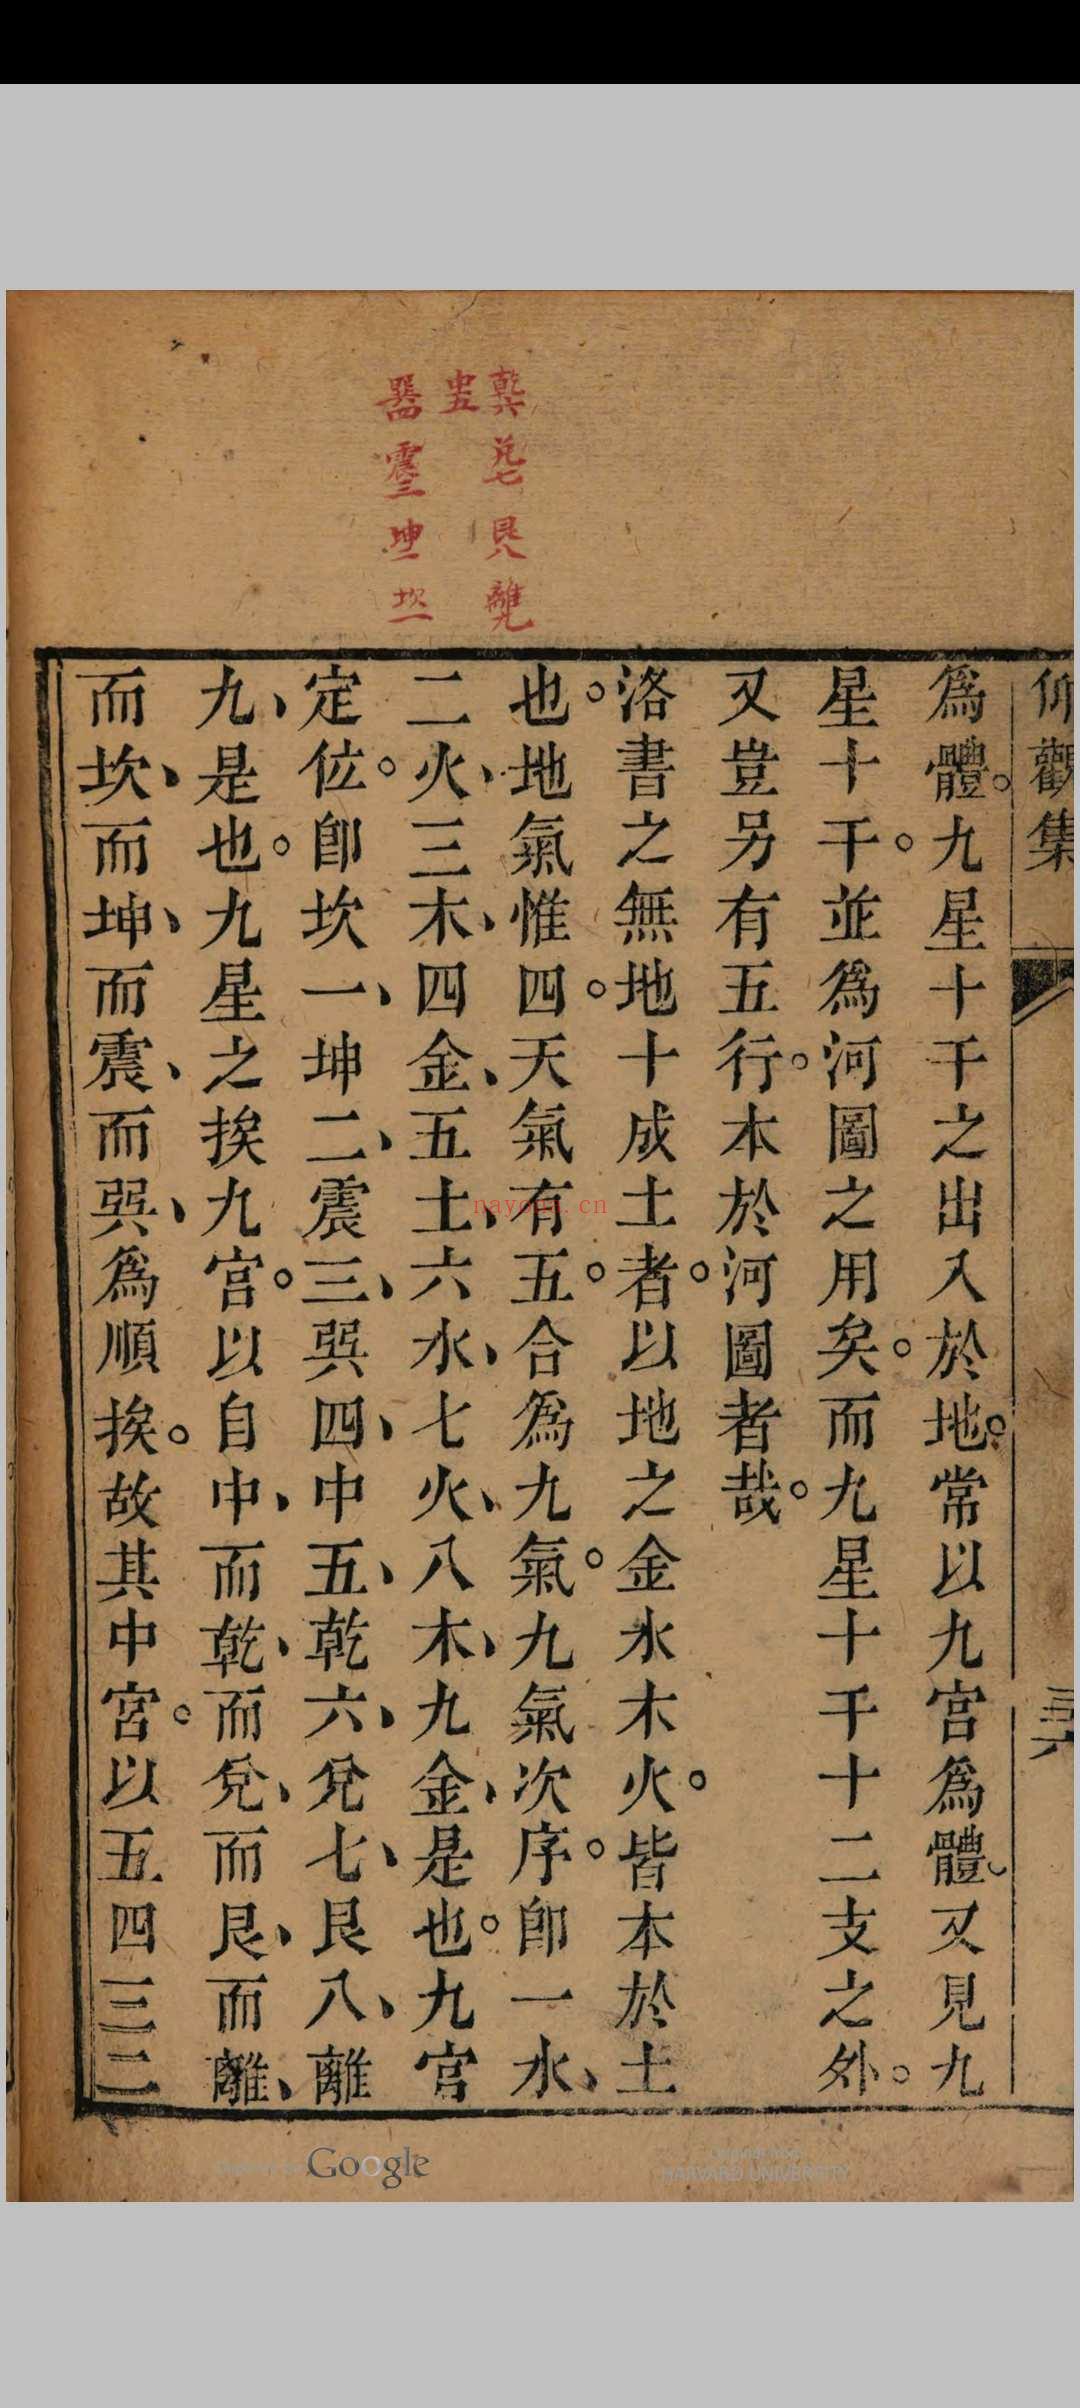 仰觀集
三六
爲體。九星十干之出入於地。常以九宮爲體。又見九
星十干。並爲河圖之用矣。而九星十干十二支之外。
又豈另有五行。本於河圖者哉。
洛書之無地十成土者。以地之金水木火。皆本於土
也。地氣惟四。天氣有五。合爲九氣。九氣次序。卽一水、
二火、三木、四金、五土、六水、七火、八木、九金、是也。九宮
定位。卽坎一、坤二、震三、巽四、中五、乾六、兌七、艮八、離
九、是也。九星之挨九宮。以自中、而乾、而兌、而艮、而離、
而坎、而坤、而震、而巽、爲順挨。故其中宮。以五四三二
乾六 兌七 艮八 離九
中五
巽四 震三 坤二 坎一
nayona.cn
Google
HARVARD UNIVERSITY